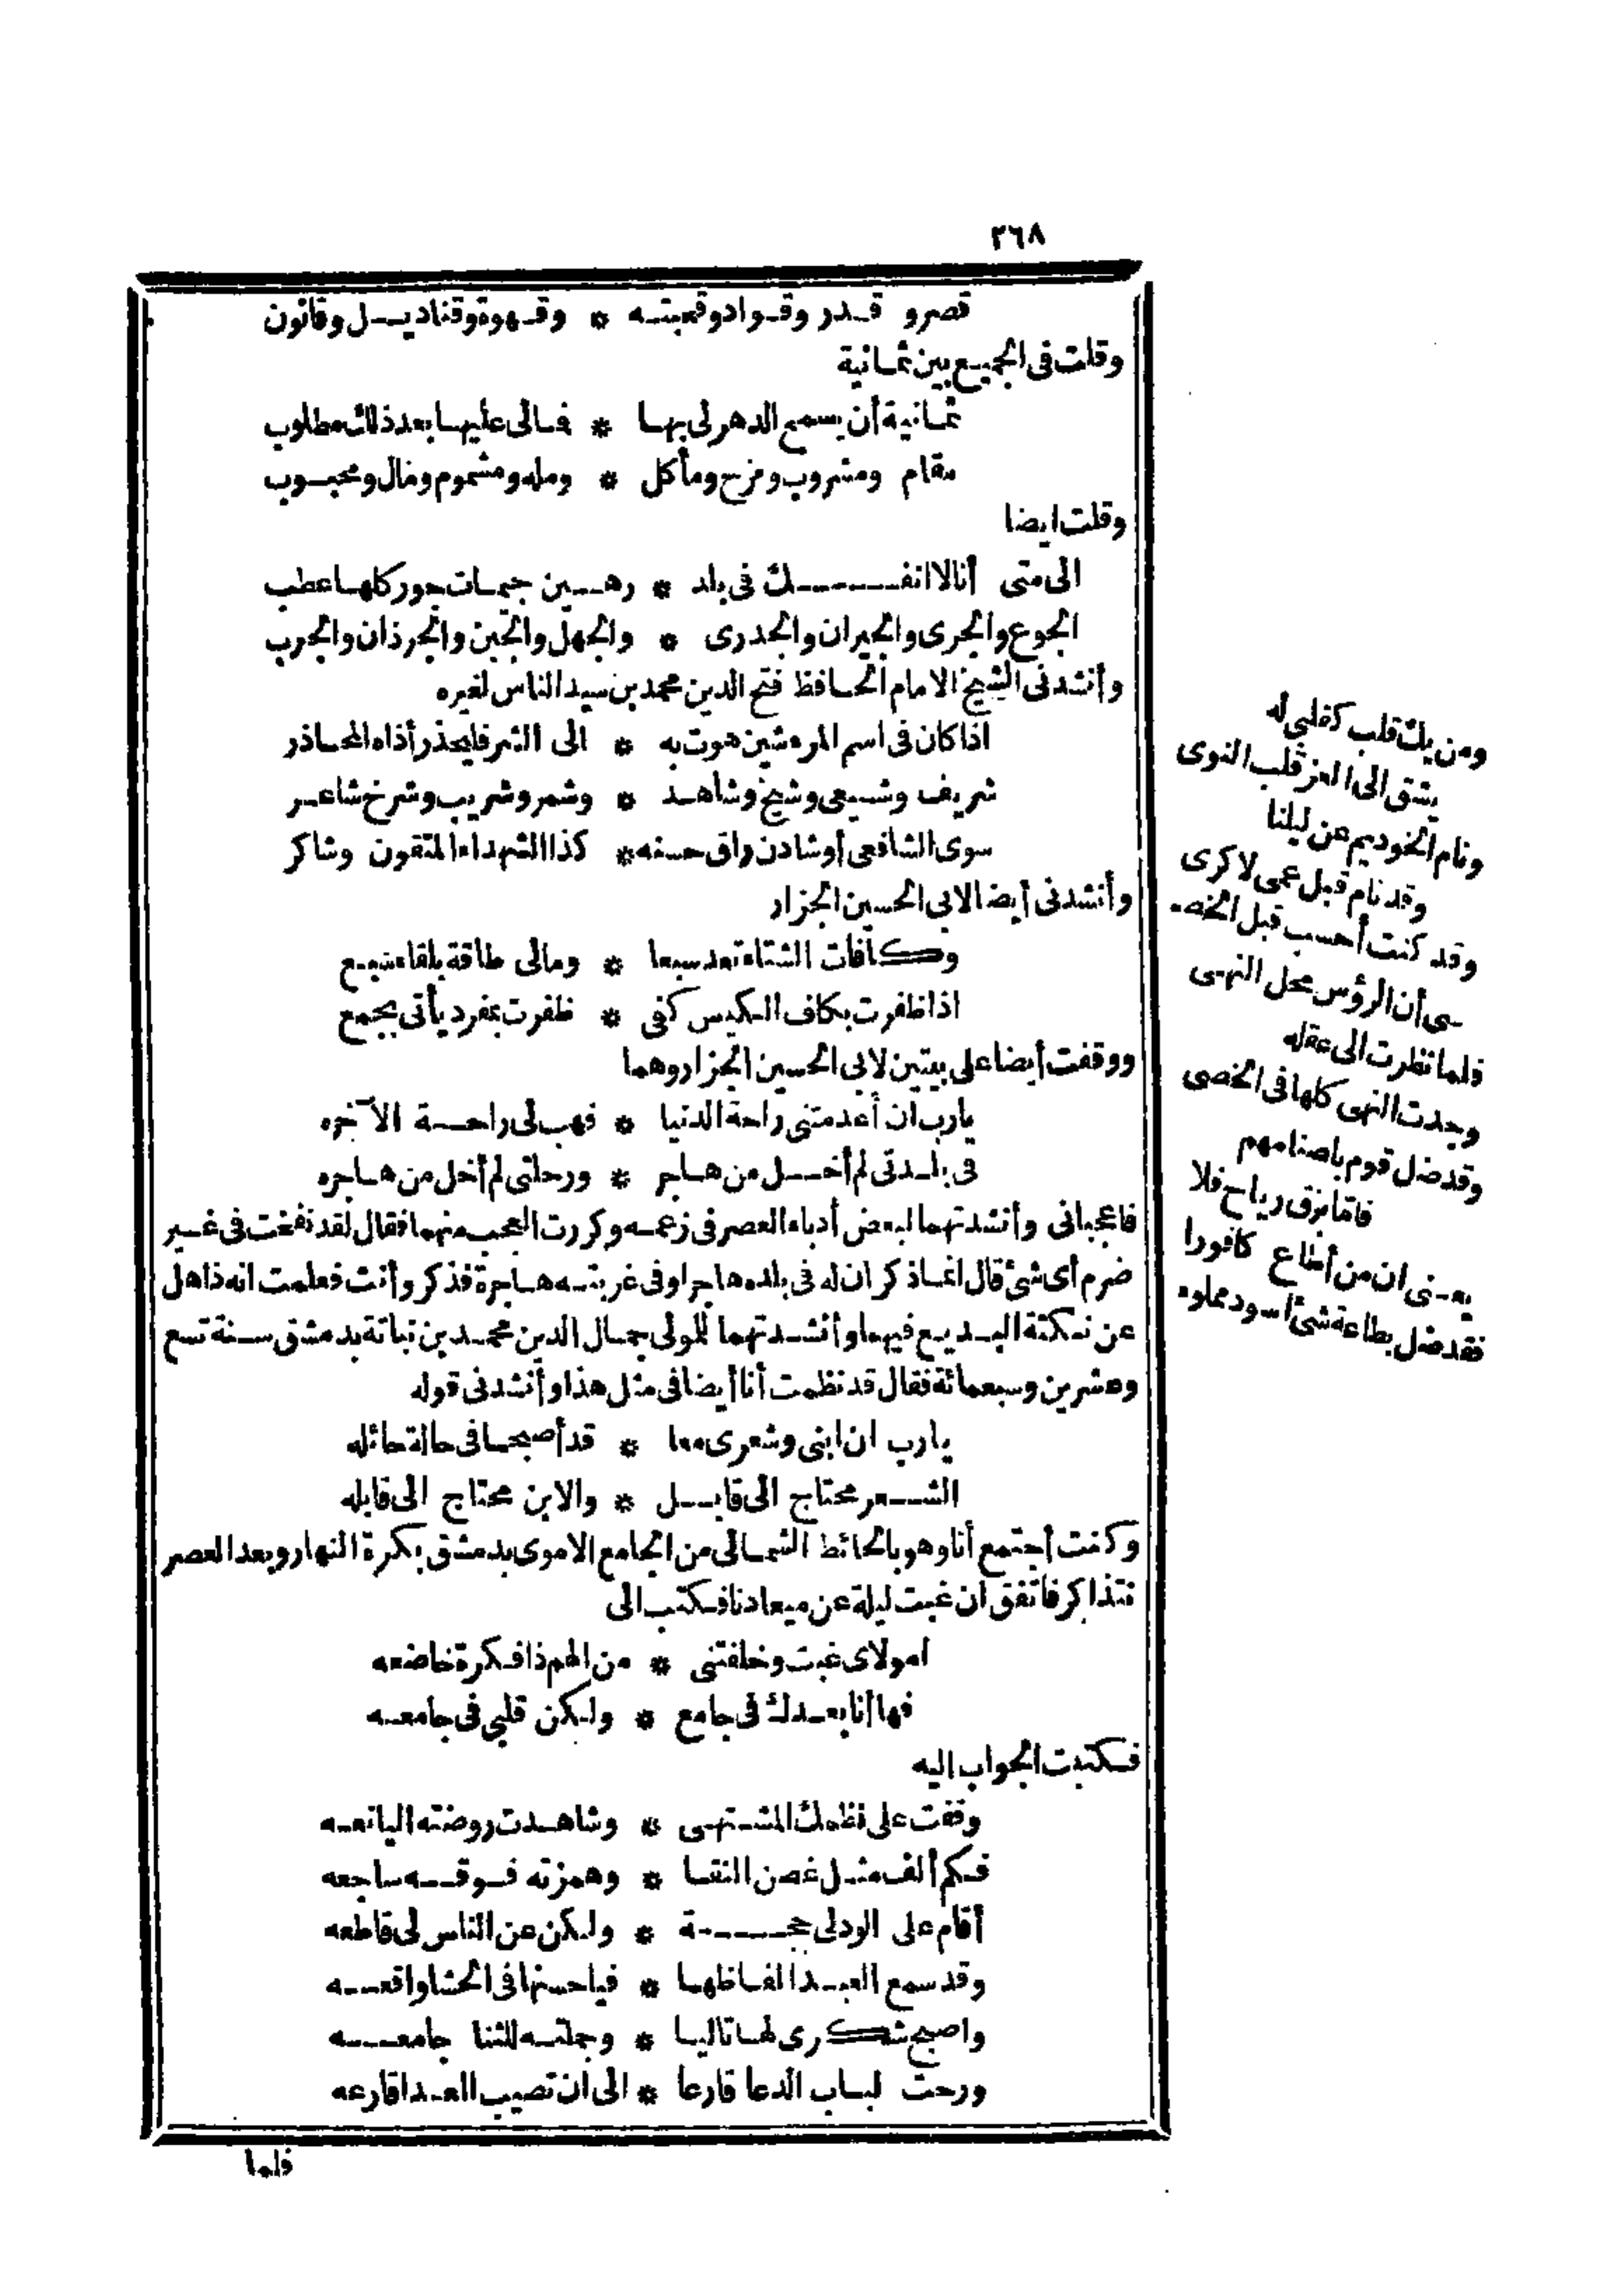 ٢٦٨
قصرو قدر وقوادوقحبته * وقهوة وقناديل وقانون
وقلت فى الجميع بين ثمانية
ثمانية أن يسمح الدهر لى بها * فالى عليها بعد ذلك مطلوب
مقام ومشروب ومزح ومأكل * ومله ومشموم ومال ومحبوب
وقلت ايضا
الى متى أنا لا انفك فى بلد * رهين جيمات جور كلها عطب
الجوع والجرى والجيران والجدرى * والجهل والجبن والجرذان والجرب
وأنشدنى الشيخ الامام الحافظ فتح الدين محمد بن سيد الناس لغيره
اذا كان فى اسم المرء شين هوت به * الى الشر فليحذر أذاه المحاذر
شريف وشيعى وشيخ وشاهد * وشمر وشريب وشرخ شاعر
سوى الشافعى أو شادن راق حسنه * كذا الشهداء المتقون وشاكر
وأنشدنى أيضا لابى الحسين الجزار
وكافات الشتاء تعد سبعا * ومالى طاقة بلقاء سبع
اذا ظفرت بكاف الكيس كفى * ظفرت بمفرد يأتى بجمع
ووقفت أيضا على بيتين لابى الحسين الجزار وهما
يارب ان أعدمتنى راحة الدنيا * فهب لى راحة الآخره
فى بلدتى لم أخل من هاجر * ورحلتى لم أخل من هاجره
فاعجبانى وأنشدتهما لبعض أدباء العصر فى زعمه وكررت العجب منهما فقال لقد نفخت فى غير
ضرم أى شئ قال انما ذكر ان له فى بلده هاجرا وفى غربته هاجرة فذكر وأنث فعلمت انه ذاهل
عن نكتة البديع فيهما وأنشدتهما للمولى جمال الدين محمد بن نباتة بدمشق سنة تسع
وعشرين وسبعمائة فقال قد نظمت أنا أيضا فى مثل هذا وأنشدنى قوله
يارب ان ابنى وشعرى معا * قد أصبحا فى حالة حائله
الشعر محتاج الى قابل * والابن محتاج الى قابله
وكنت أجتمع أنا وهو بالحائط الشمالى من الجامع الاموى بدمشق بكرة النهار وبعد العصر
نتذاكر فاتفق ان غبت ليلة عن ميعادنا فكتب الى
امولاى غبت وخلفتنى * من الهم ذا فكرة خاضعه
فها أنا بعدك فى جامع * ولكن قلبى فى جامعه
فكتبت الجواب اليه
وقفت على نظمك المشتهى * وشاهدت روضته اليانعه
فكم ألف مثل غصن النقا * وهمزته فوقه ساجعه
أقام على الود لى حجة * ولكن عن الناس لى قاطعه
وقد سمع العبد الفاظها * فيا حسنها فى الحشا واقعه
واصبح شكرى لها تاليا * وجملته للثنا جامعه
ورحت لباب الدعا قارعا * الى ان تصيب العدا قارعه
فلما
ومن يك قلب كقلبى له
يشق الى العز قلب النوى
ونام الخويديم عن ليلنا
وقد نام قبل عمى لا كرى
وقد كنت أحسب قبل الخصـ
ـى أن الرؤس محل النهى
فلما نظرت الى عقله
وجدت النهى كلها فى الخصى
وقد ضل قوم باصنامهم
فاما بزق رياح فلا
يعنى ان من أطاع كافورا
فقد ضل بطاعة شئ أسود مملوء